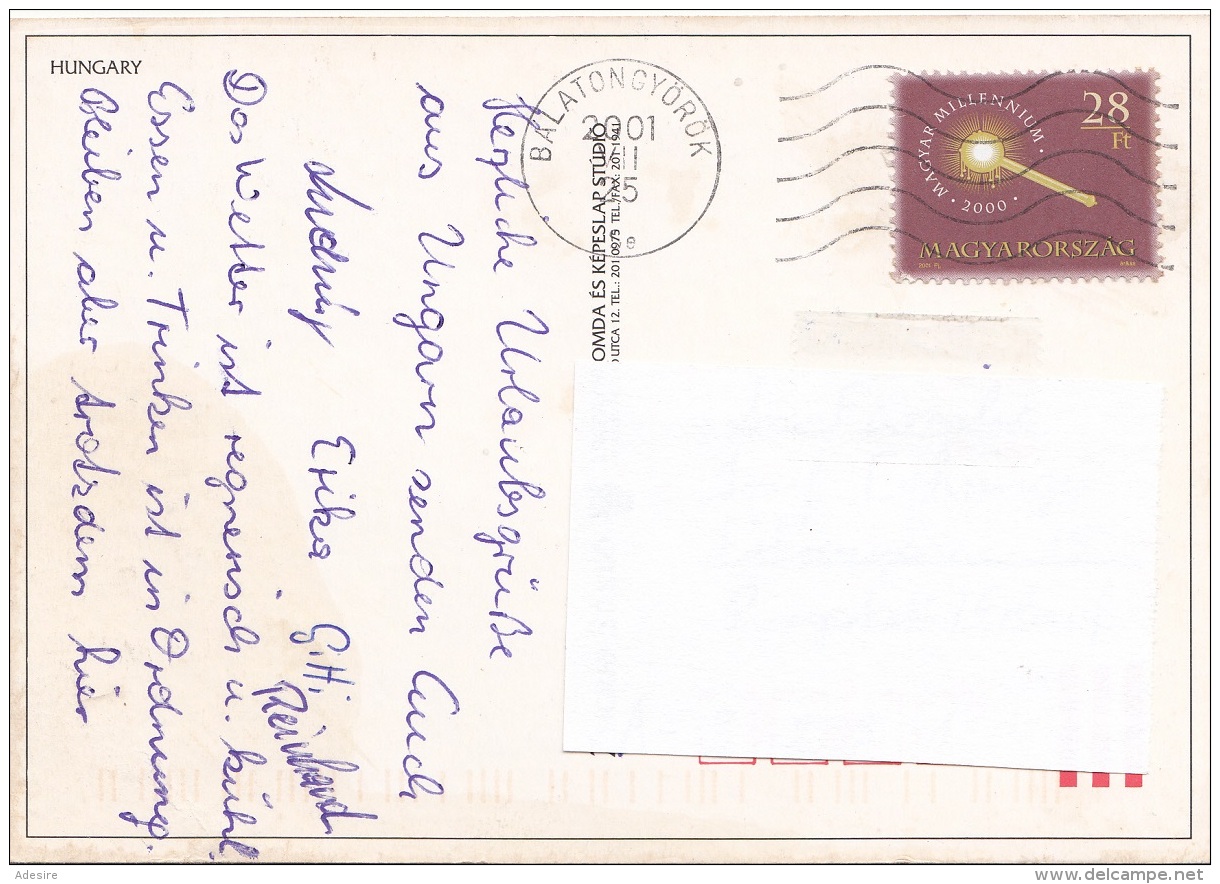 HUNGARY
Herzliche Urlaubsgrüße
aus Ungarn senden Euch
Erika Gitti
Reinhard
Das Wetter ist regnerisch u. kühl.
Essen u. Trinken ist in Ordnung.
Bleiben aber trotzdem hier
BALATONGYÖRÖK
2001
OMDA ÉS KÉPESLAP STÚDIÓ
UTCA 12. TEL.: 201 0975 TEL./FAX: 201 1941
MAGYAR MILLENNIUM · 2000 ·
28
Ft
MAGYARORSZÁG
Adesire
delcampe.net